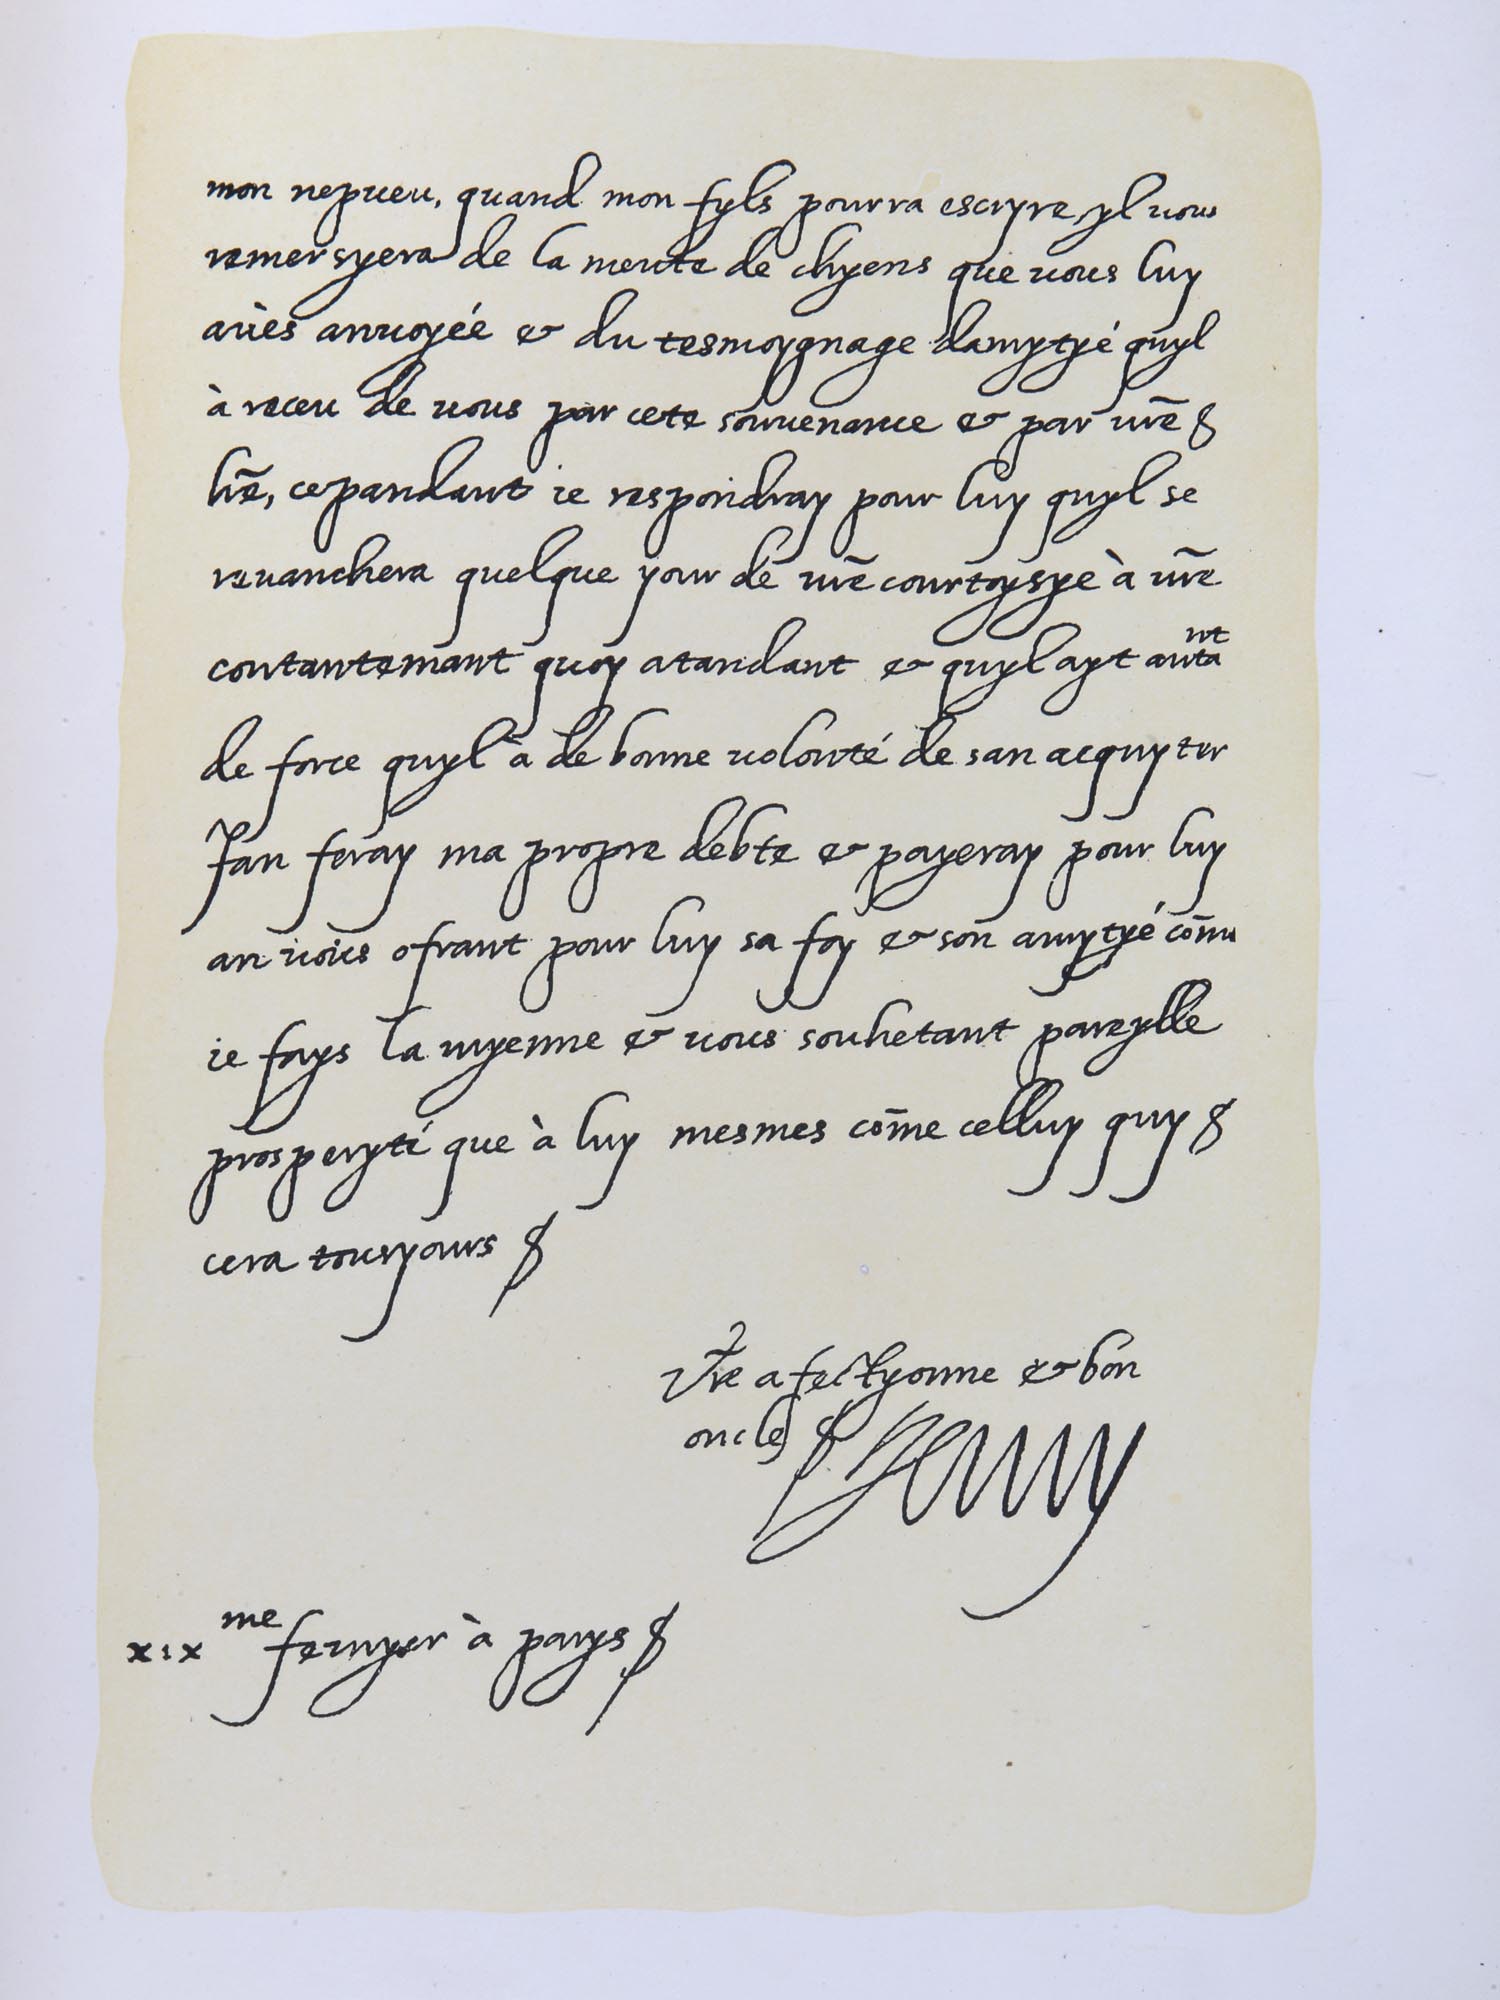 mon nepueu, quand mon fyls pourra escryre yl vous
remersyera de la meute de chyens que vous luy
aués anuoyée & du tesmoygnage damytyé quyl
à receu de vous par cete souuenance & par vre
lre, cepandant ie respondray pour luy quyl se
reuanchera quelque your de vre courtoysye à vre
contantemant quoy atandant & quyl ayt autant
de force quyl à de bonne volonté de san acquyter
Jan feray ma propre debte & payeray pour luy
an vous ofrant pour luy sa foy & son amytyé comme
ie fays la myenne & vous souhetant pareylle
prosperyté que à luy mesmes come celluy quy
cera tousyours
Vre afectyonne & bon
oncle Henry
xix me feuryer à parys